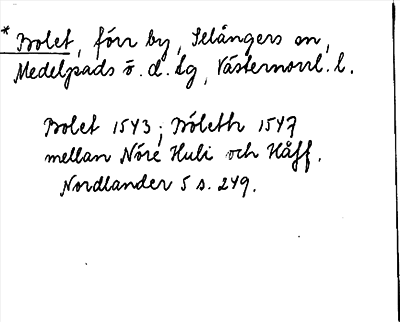 * Bolet, förr by, Selångers sn,
Medelpads ö. d. lg, Västernorrl. l.
Bolet 1543; Bóleth 1547
mellan Nöre Huli och Håff.
Nordlander 5 s. 249.